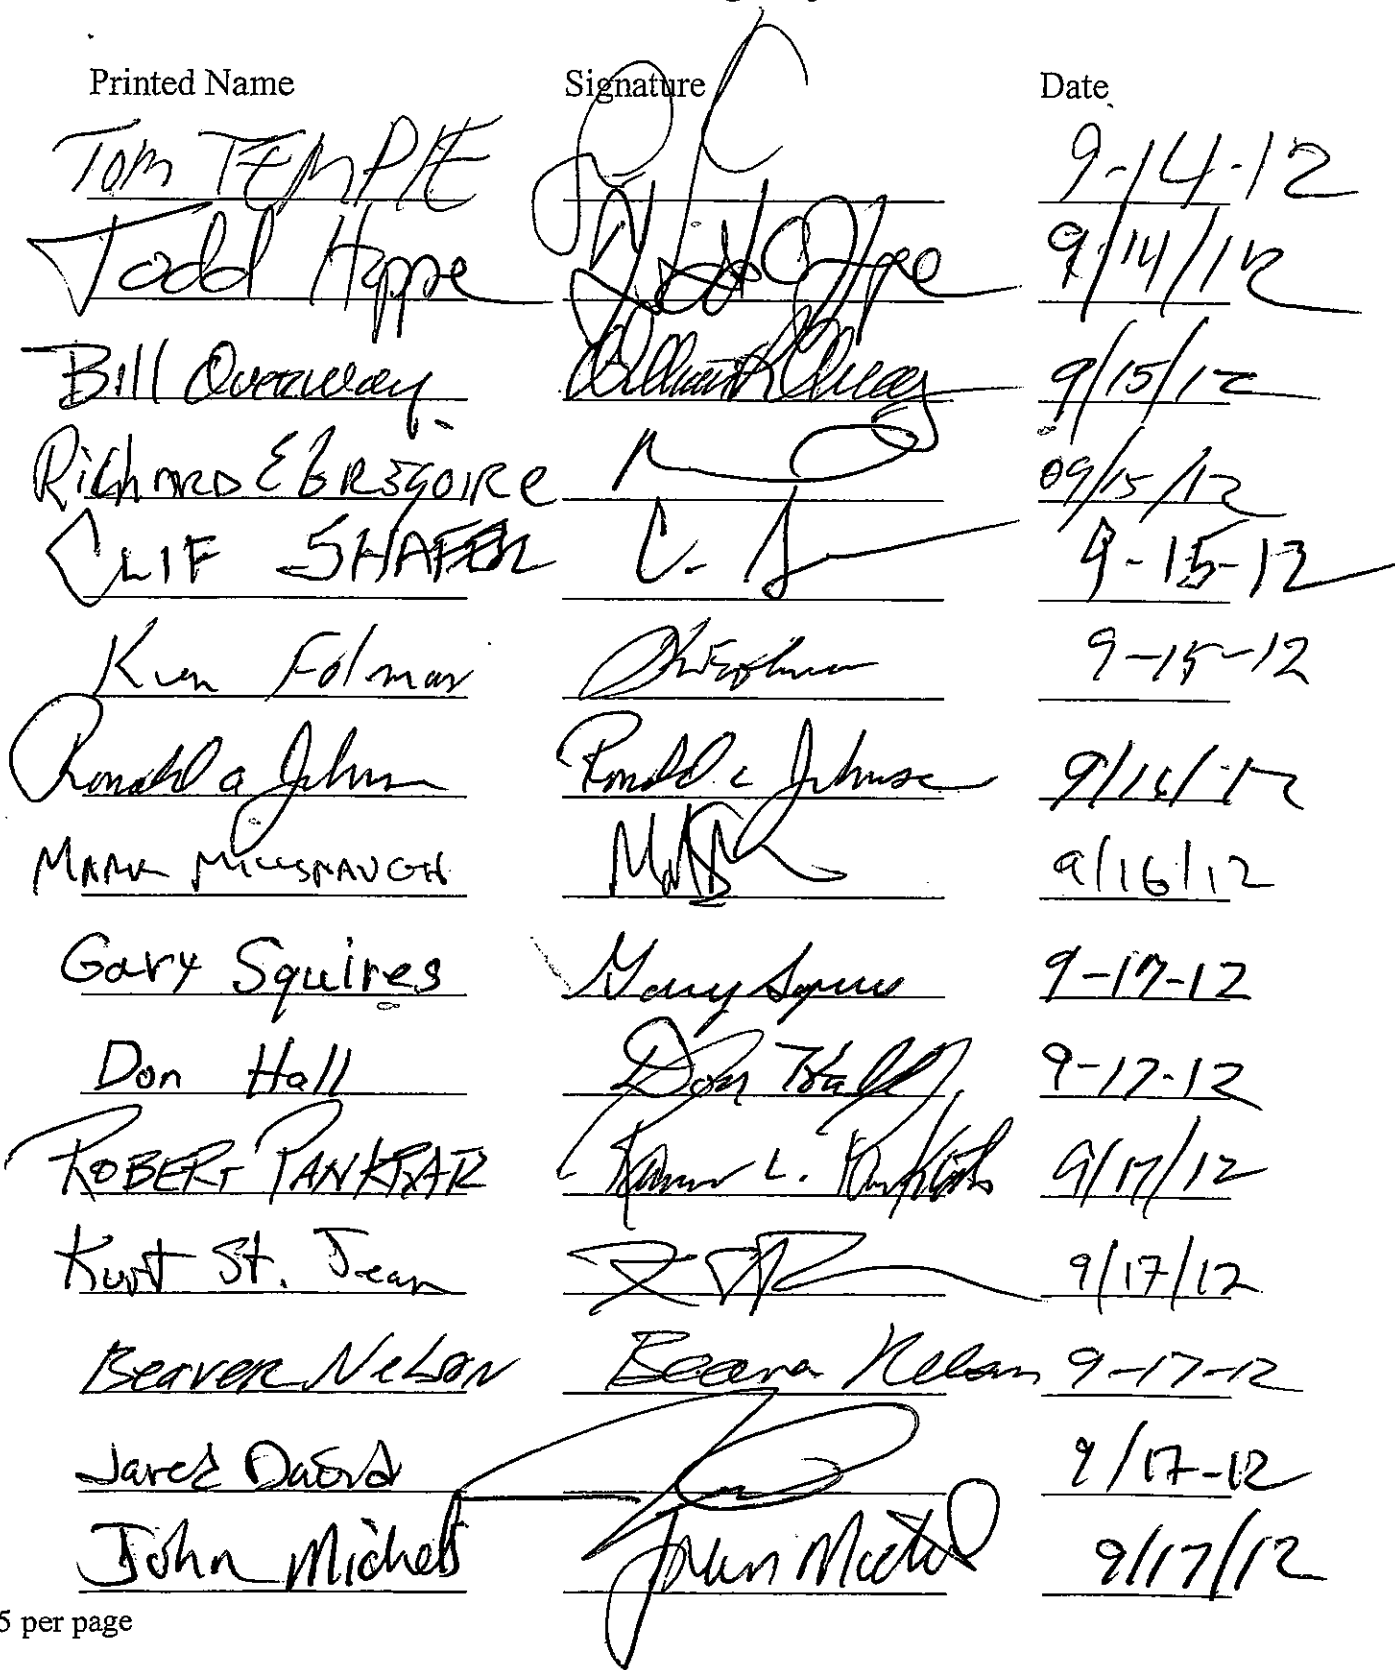 Printed Name Signature Date
Tom TEMPLE 9-14-12
Todd Hoppe Todd Hoppe 9/14/12
Bill Overway 9/15/12
RichARD E GREGOIRE 09/15/12
CLIF SHAFER C. S 9-15-12
Ken Folmar 9-15-12
Ronald a Johnson Ronald a Johnson 9/16/12
MARK MILLSPAUGH 9/16/12
Gary Squires Gary Squires 9-17-12
Don Hall Don Hall 9-17-12
ROBERT PANKRATZ L. 9/17/12
Kurt St. Jean 9/17/12
Beaver Nelson Beaver Nelson 9-17-12
Jared David 9/17-12
John Michels John 9/17/12
5 per page